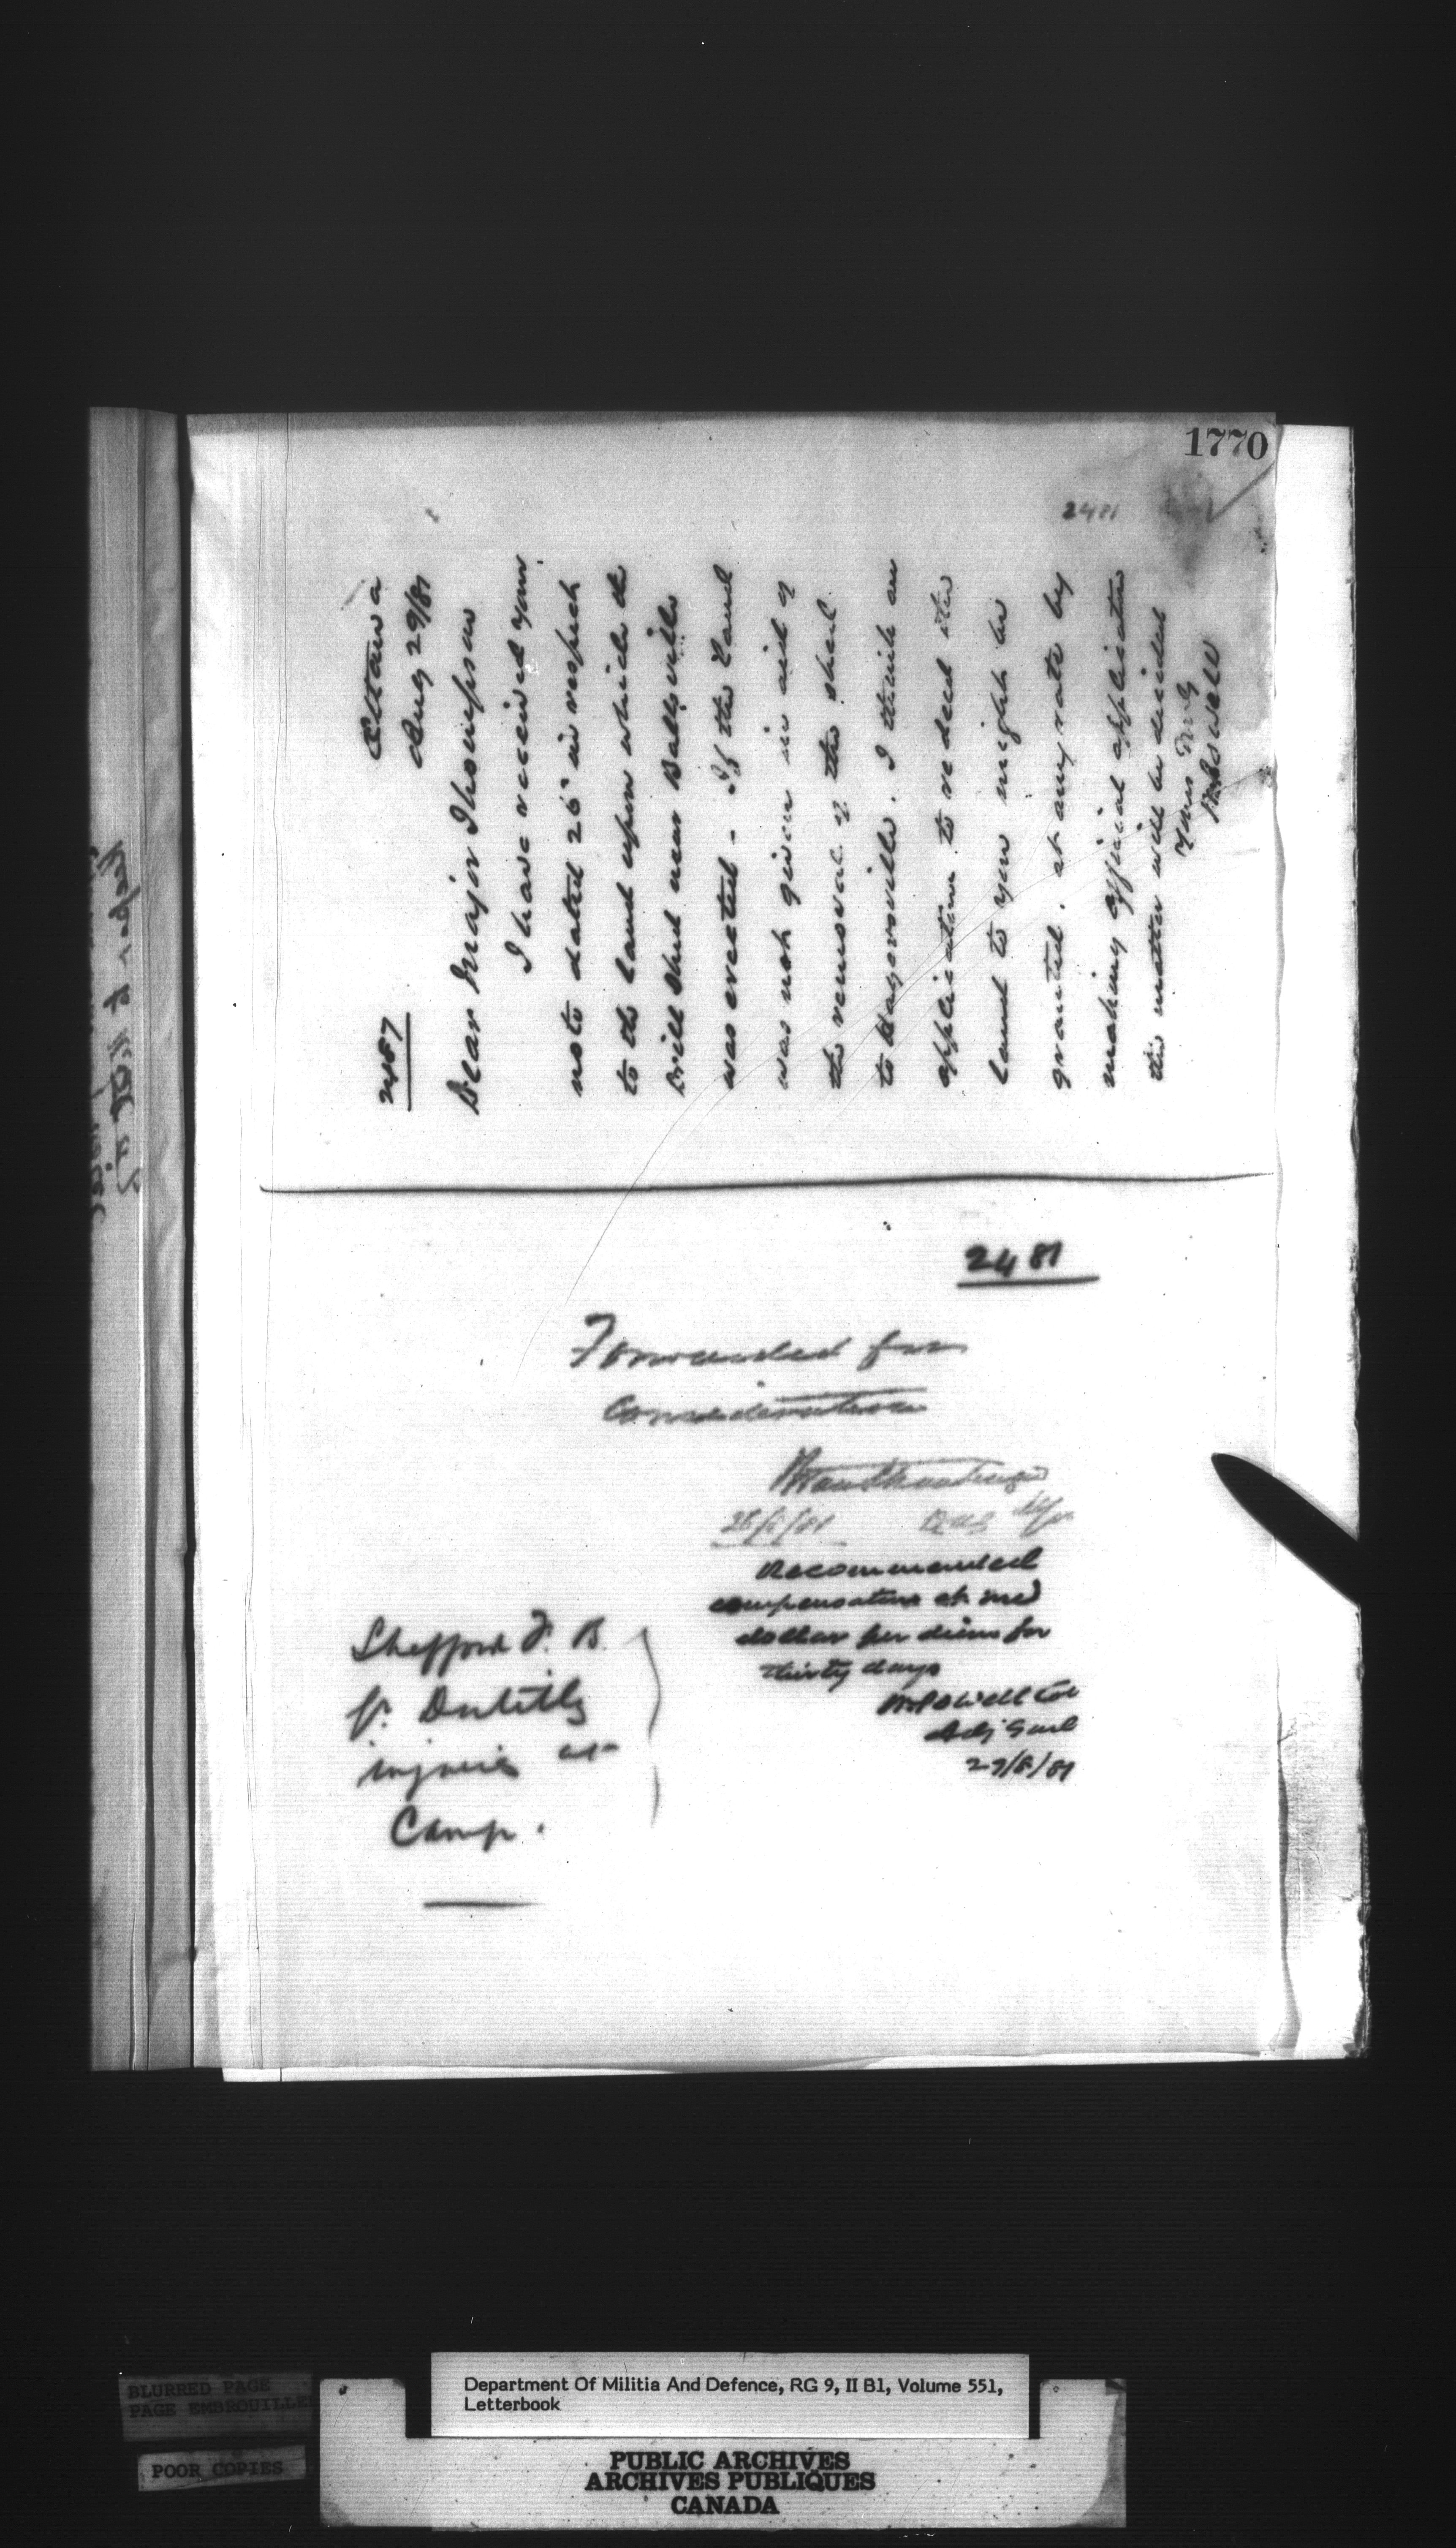 1770
2481
2487
Ottawa
Aug 29/81
Dear Major Thompson
I have received your
note dated 26th in respect
to the land upon which the
Drill Shed near Ballsville
was erected - If the land
was not given in aid of
the removal of the shed
to Hagersville. I think an
application to redeed the
land to you might be
granted. at any rate by
making official application
the matter will be decided
Yours truly
W Powell
2481
Forwarded for
Consideration
Recommended
compensation at one
dollar per diem for
thirty days
W Powell Col
Adj Genl
29/8/81
Shefford F. B.
injuries at
Camp.
BLURRED PAGE
PAGE EMBROUILLEE
POOR COPIES
Department Of Militia And Defence, RG 9, II B1, Volume 551,
Letterbook
PUBLIC ARCHIVES
ARCHIVES PUBLIQUES
CANADA